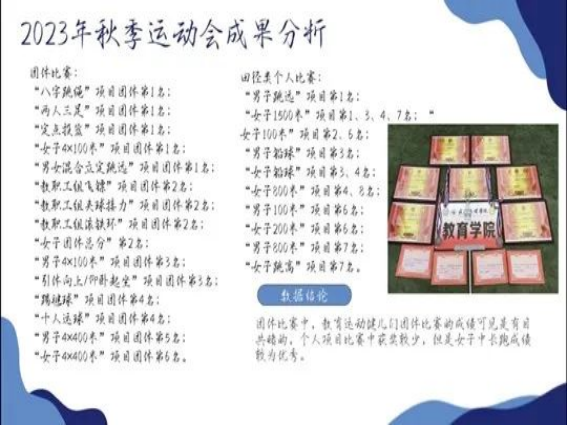 2023年秋季运动会成果分析
团体比赛：
“八字跳绳”项目团体第1名；
“两人三足”项目团体第1名；
“定点投篮”项目团体第1名；
“女子4×100米”项目团体第1名；
“男女混合立定跳远”项目团体第1名；
“教职工组飞镖”项目团体第2名；
“教职工组夹球接力”项目团体第2名；
“教职工组滚铁环”项目团体第2名；
“女子团体总分”第2名；
“男子4×100米”项目团体第3名；
“引体向上/仰卧起坐”项目团体第3名；
“踢毽球”项目团体第4名；
“十人运球”项目团体第4名；
“男子4×400米”项目团体第5名；
“女子4×400米”项目团体第6名。
田径类个人比赛：
“男子跳远”项目第1名；
“女子1500米”项目第1、3、4、7名；“
女子100米”项目第2、5名；
“男子铅球”项目第3名；
“女子铅球”项目第3、4名；
“女子800米”项目第4、8名；
“男子100米”项目第6名；
“女子200米”项目第6名；
“男子800米”项目第7名；
“女子跳高”项目第7名。
教育学院
数据结论
团体比赛中，教育运动健儿们团体比赛的成绩可见是有目
共睹的，个人项目比赛中获奖较少，但是女子中长跑成绩
较为优秀。